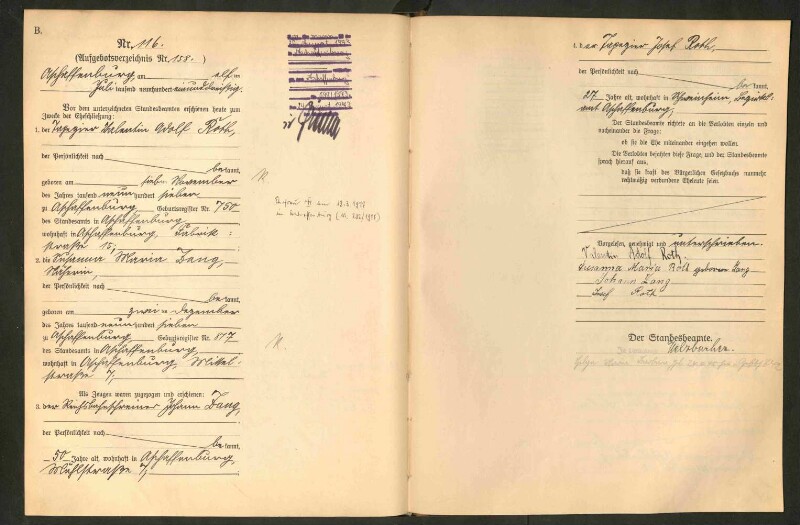 B.
Nr. 116.
(Aufgebotsverzeichnis Nr. 158. )
Aschaffenburg, am elf ten
Juli tausend neunhundert einunddreißig.
Vor dem unterzeichneten Standesbeamten erschienen heute zum
Zwecke der Eheschließung:
1. der Tapezier Valentin Adolf Roth,
der Persönlichkeit nach
be kannt,
geboren am sieben November
des Jahres tausend neun hundert sieben
zu Aschaffenburg Geburtsregister Nr. 750
des Standesamts in Aschaffenburg,
wohnhaft in Aschaffenburg, Fabrik-
straße 15;
2. die Susanna Maria Zang,
Näherin,
der Persönlichkeit nach
be kannt,
geboren am zwei ten Dezember
des Jahres tausend neun hundert sieben
zu Aschaffenburg, Geburtsregister Nr. 817
des Standesamts in Aschaffenburg,
wohnhaft in Aschaffenburg,
straße 7;
Als Zeugen waren zugezogen und erschienen:
3. der Reichsbahnschreiner Johann Zang,
der Persönlichkeit nach
be kannt,
50 Jahre alt, wohnhaft in Aschaffenburg
Mühlstraße 7;
4. der Tapezier Josef Roth,
der Persönlichkeit nach
be kannt,
27 Jahre alt, wohnhaft in Schweinheim, Bezirks-
amt Aschaffenburg;
Der Standesbeamte richtete an die Verlobten einzeln und
nacheinander die Frage:
ob sie die Ehe miteinander eingehen wollen.
Die Verlobten bejahten diese Frage, und der Standesbeamte
sprach hierauf aus,
daß sie kraft des Bürgerlichen Gesetzbuchs nunmehr
rechtmäßig verbundene Eheleute seien.
Vorgelesen, genehmigt und unterschrieben.
Valentin Adolf Roth.
Susanna Maria Roth geborene Zang
Johann Zang
Josef Roth.
Der Standesbeamte.